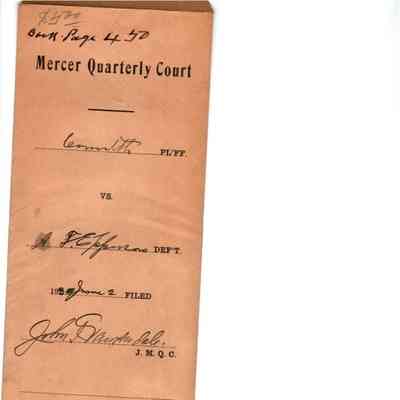 $5.00
Book Page 450
Mercer Quarterly Court
Comwlth PL'FF.
VS.
F. Epperson DEF'T.
June 2 FILED
John
J. M. Q. C.